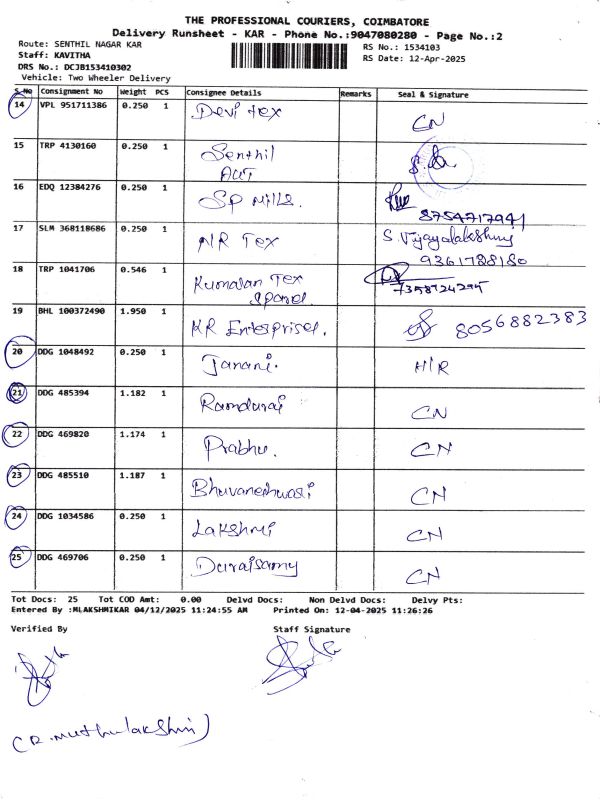 THE PROFESSIONAL COURIERS, COIMBATORE
Delivery Runsheet - KAR - Phone No.:9047080280 - Page No.:2
Route: SENTHIL NAGAR KAR RS No.: 1534103
Staff: KAVITHA RS Date: 12-Apr-2025
DRS No.: DCJB153410302
Vehicle: Two Wheeler Delivery
S.No Consignment No Weight PCS Consignee Details Remarks Seal & Signature
14 VPL 951711386 0.250 1 Devi tex CN
15 TRP 4130160 0.250 1 Senthil
16 EDQ 12384276 0.250 1 SP Mills. 8754717941
17 SLM 368118686 0.250 1 NR Tex S. Vijayalakshmy
9361788180
18 TRP 1041706 0.546 1 Kumaran Tex
7358724295
19 BHL 100372490 1.950 1 KR Enterprises. 8056882383
20 DDG 1048492 0.250 1 Janani. H/R
21 DDG 485394 1.182 1 Ramdurai CN
22 DDG 469820 1.174 1 Prabhu. CN
23 DDG 485510 1.187 1 Bhuvaneshwari CN
24 DDG 1034586 0.250 1 Lakshmi CN
25 DDG 469706 0.250 1 Duraisamy CN
Tot Docs: 25 Tot COD Amt: 0.00 Delvd Docs: Non Delvd Docs: Delvy Pts:
Entered By :MLAKSHMIKAR 04/12/2025 11:24:55 AM Printed On: 12-04-2025 11:26:26
Verified By Staff Signature
(R. Muthulakshmi)